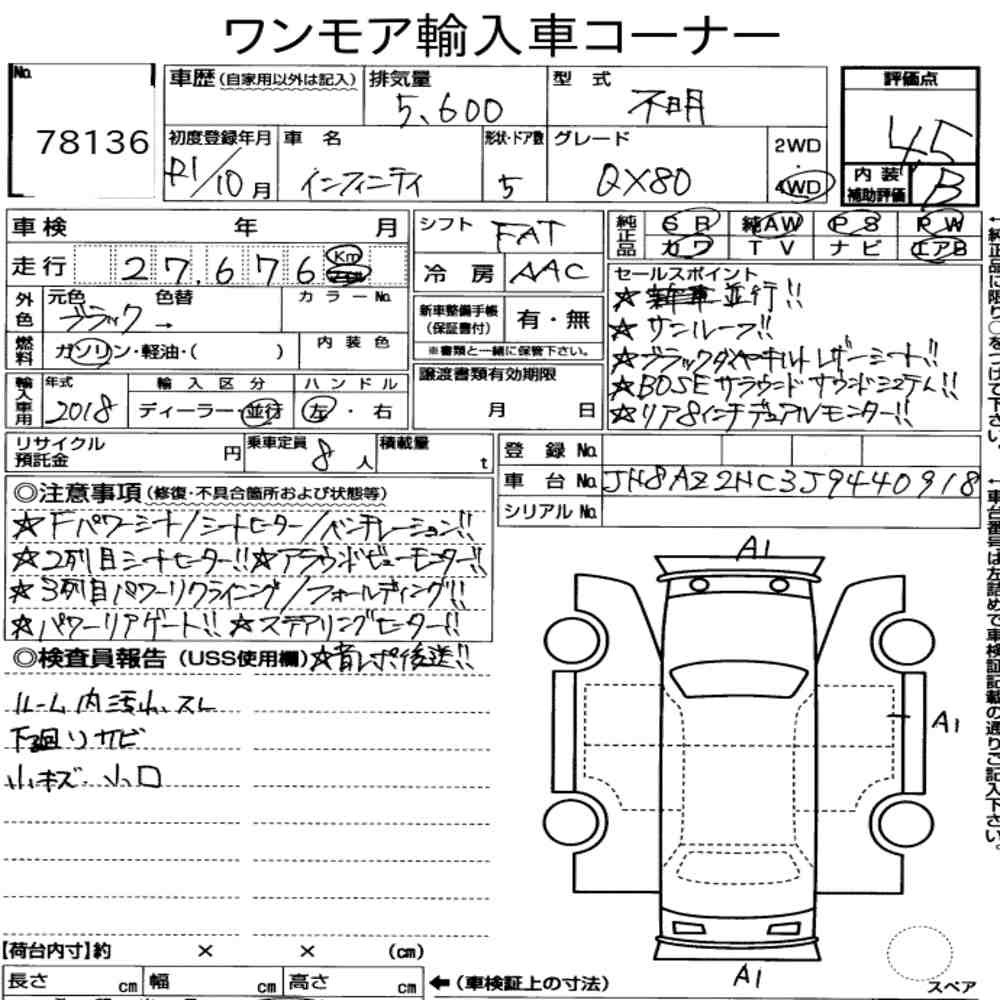 ワンモア輸入車コーナー
No. 78136
車歴(自家用以外は記入) 排気量 5,600 型式 不明
評価点 4.5
初度登録年月 R1/10月 車名 インフィニティ 形状・ドア数 5 グレード QX80 2WD・4WD
内装補助評価 B
車検 年 月
走行 27,676 Km
シフト FAT
冷房 AAC
純正品 SR 純AW PS PW
カワ TV ナビ エアB
外色 元色 ブラック → 色替 カラーNo.
燃料 ガソリン・軽油・( ) 内装色
新車整備手帳(保証書付) 有・無
※書類と一緒に保管下さい。
輸入車用 年式 2018 輸入区分 ディーラー・並行 ハンドル 左・右
譲渡書類有効期限 月 日
セールスポイント
☆新車並行!!
☆サンルーフ!!
☆ブラックダイヤキルトレザーシート!!
☆BOSEサラウンドサウンドシステム!!
☆リア8インチデュアルモニター!!
リサイクル預託金 円 乗車定員 8人 積載量 t
登録No.
車台No. JN8AZ2NC3J9440918
シリアルNo.
◎注意事項(修復・不具合箇所および状態等)
☆Fパワーシート/シートヒーター/ベンチレーション!!
☆2列目シートヒーター!!☆アラウンドビューモニター!!
☆3列目パワーリクライニング/フォールディング!!
☆パワーリアゲート!!☆ステアリングヒーター!!
◎検査員報告(USS使用欄)☆首レポ後送!!
ルーム内汚小、スレ
下廻りサビ
小キズ、小凹
A1
A1
A1
スペア
【荷台内寸】約 × × (cm)
長さ cm 幅 cm 高さ cm ←(車検証上の寸法)
←純正品に限り○をつけて下さい。
←車台番号は左詰めで車検証記載の通りご記入下さい。